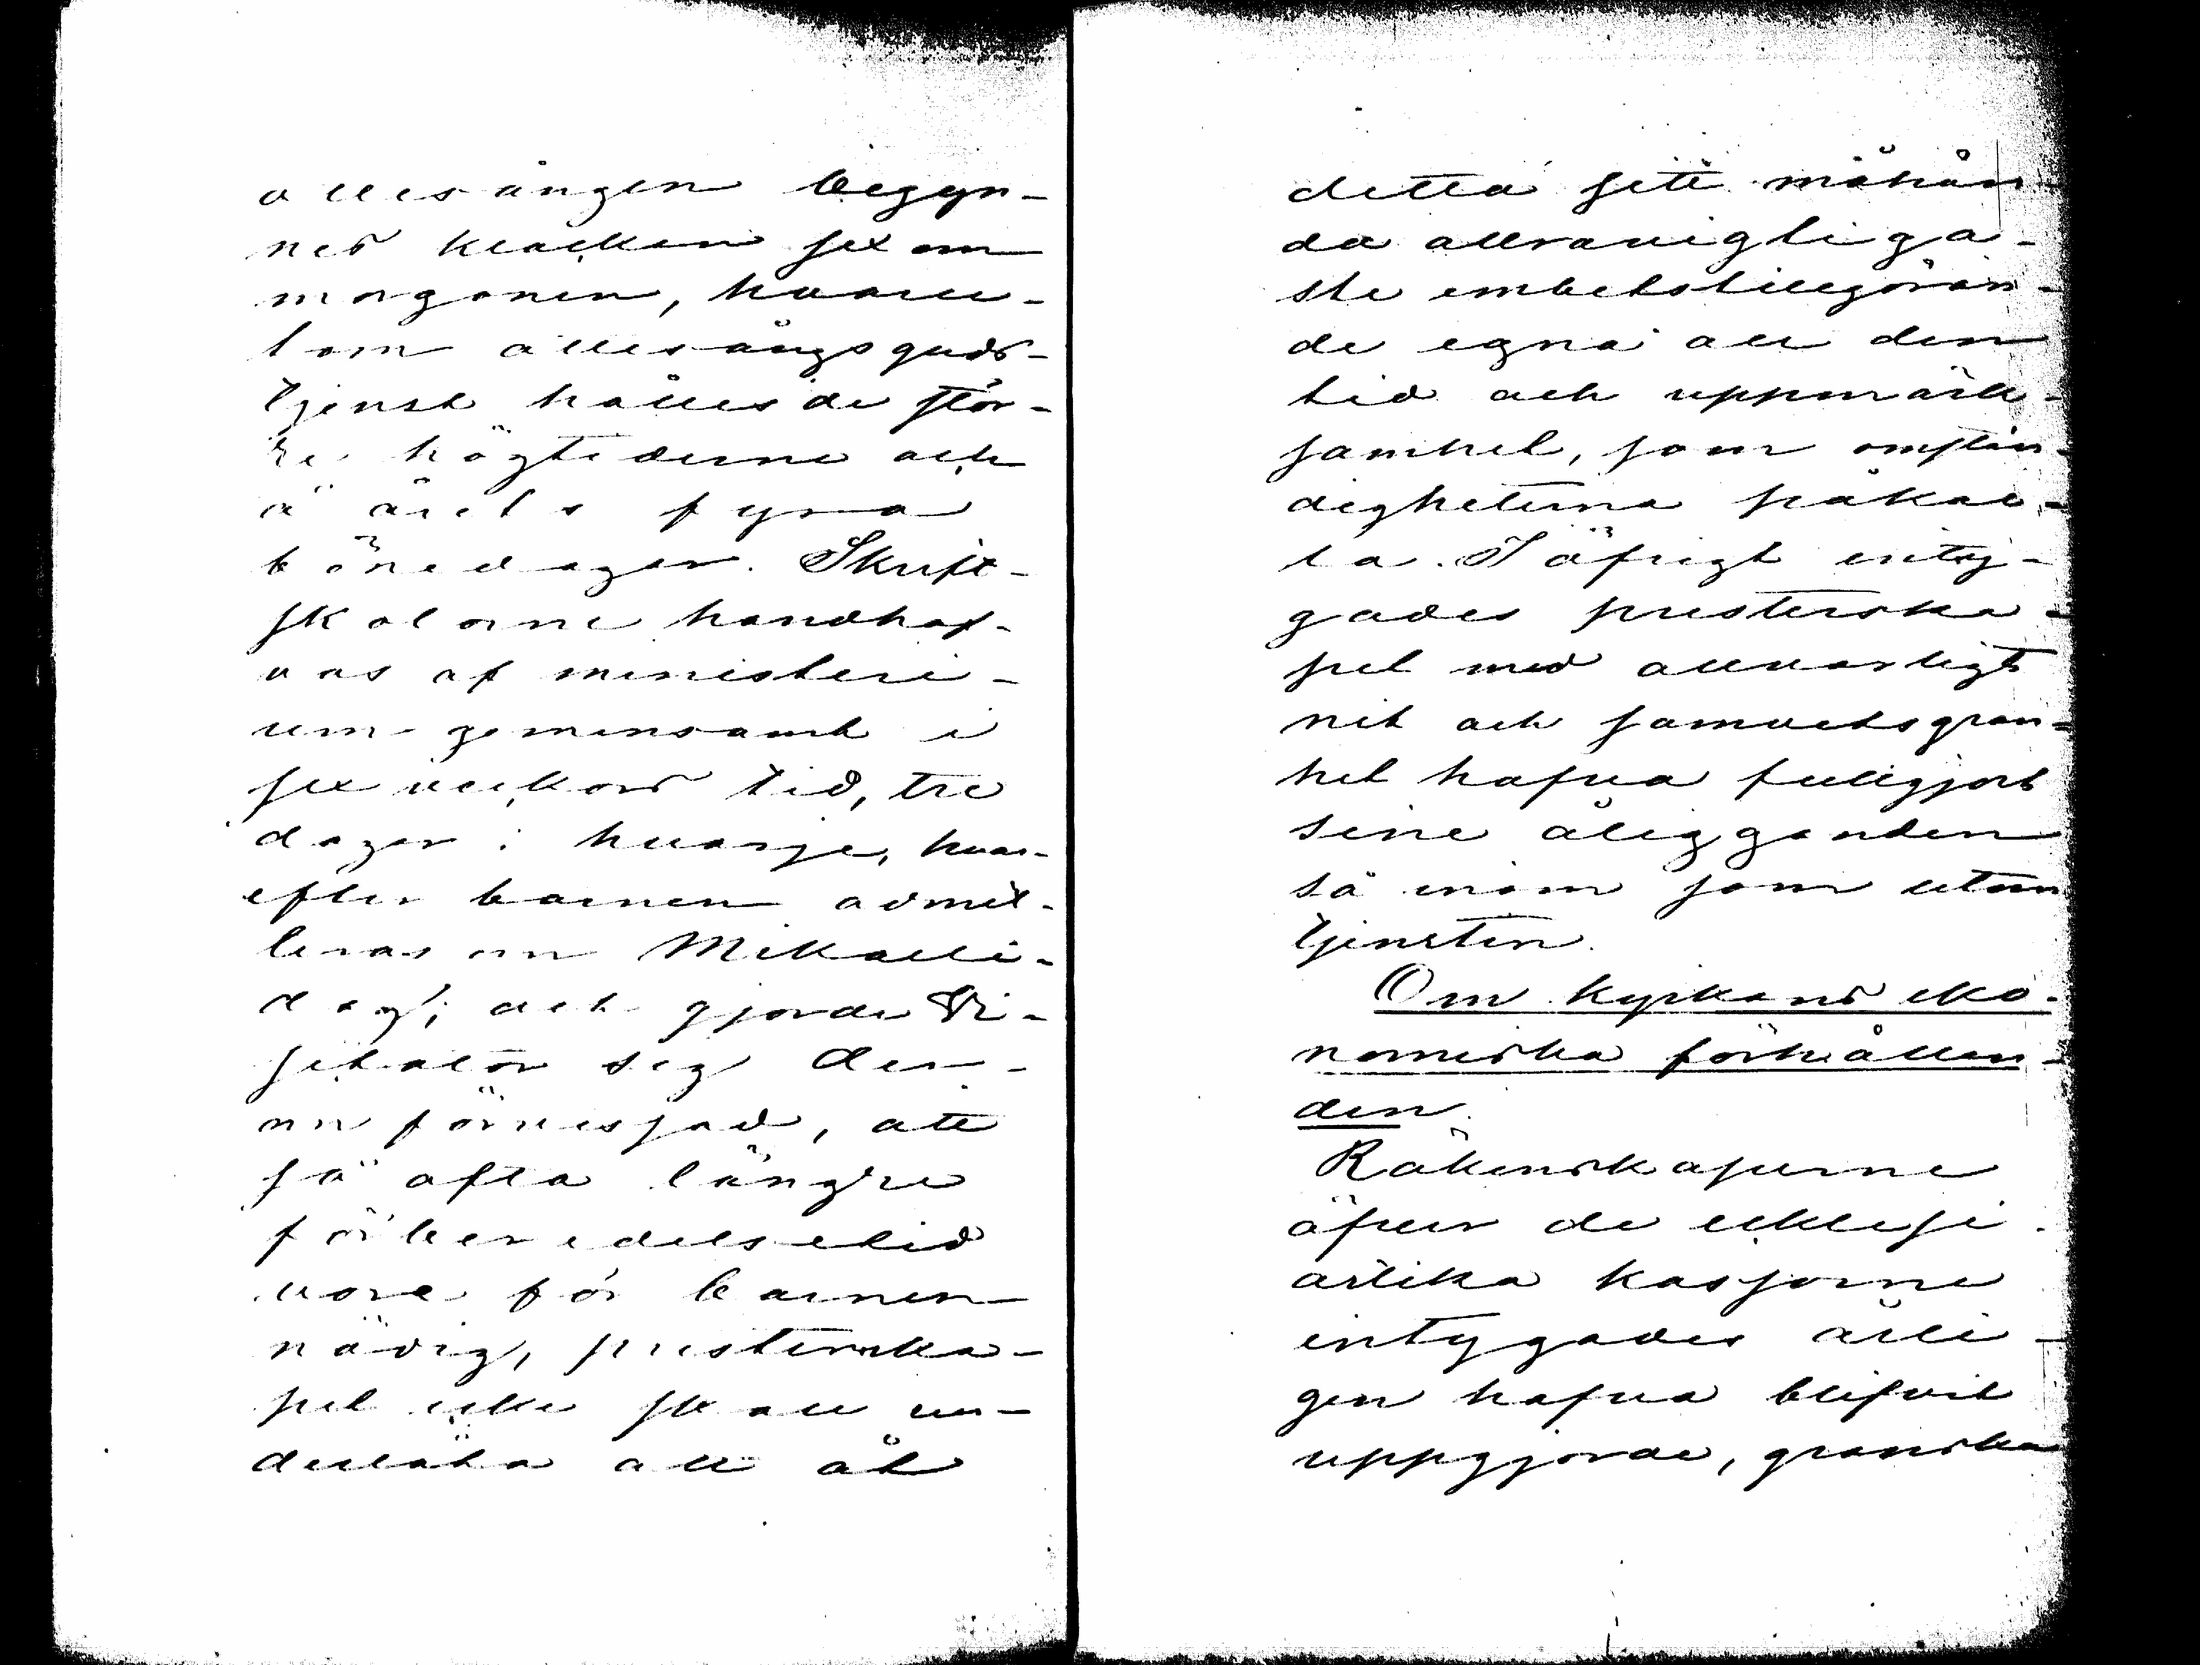 ottesången begyn-
nes klockan sex om
morgonen, hvaru-
tom ottesångsguds-
tjenst hålles de stör-
re högtiderne och
å årets fyra
bönedagar. Skrift-
skolorne handhaf-
vas af ministeri-
um gemensamt i
sex veckors tid, tre
dagar i hvarje, hvar-
efter barnen admit-
teras om Mikaeli-
dag; och gjorde Vi-
sitator sig der-
om förvissad, att
så ofta längre
förberedelsetid
vore för barnen
nödig, presterska-
pet icke skall un-
derlåta att åt
detta sitt måhän-
da allravigtiga-
ste embetsåliggöran-
de egna all den
tid och uppmärk-
samhet, som omstän-
digheterna påkal-
la. I öfrigt intyg-
gades presterska-
pet med allvarligt
nit och samvetsgran-
het hafva fullgjort
sine åligganden
så inom som utom
tjensten.
Om kyrkans eko-
nomiska förhållan-
den.
Räkenskaperne
öfver de ecklesi-
astika kassorne
intygades årli-
gen hafva blifvit
uppgjorde, granska